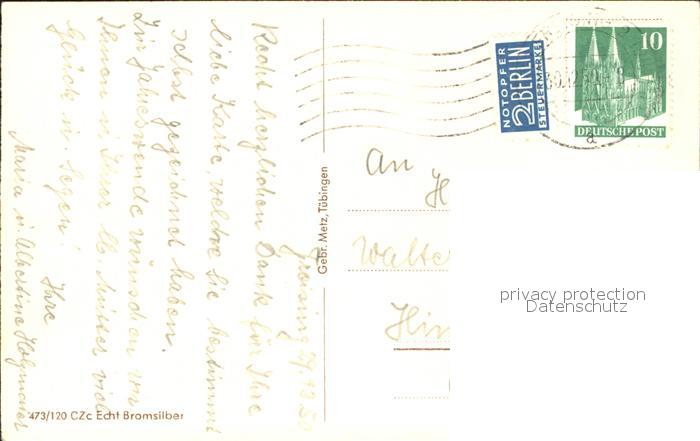 Freising 29.12.50
Recht herzlichen Dank für Ihre
liebe Karte, welche Sie bestimmt
selbst gezeichnet haben.
Zur Jahreswende wünschen wir
Ihnen u. Ihrer lb. Mutter viel
Glück u. Segen!
Ihre
Maria u. Albertine
473/120 CZc Echt Bromsilber
Gebr. Metz, Tübingen
NOTOPFER
2 BERLIN
STEUERMARKE
10
DEUTSCHE POST
a
An
H
Walte
Hin
privacy protection
Datenschutz